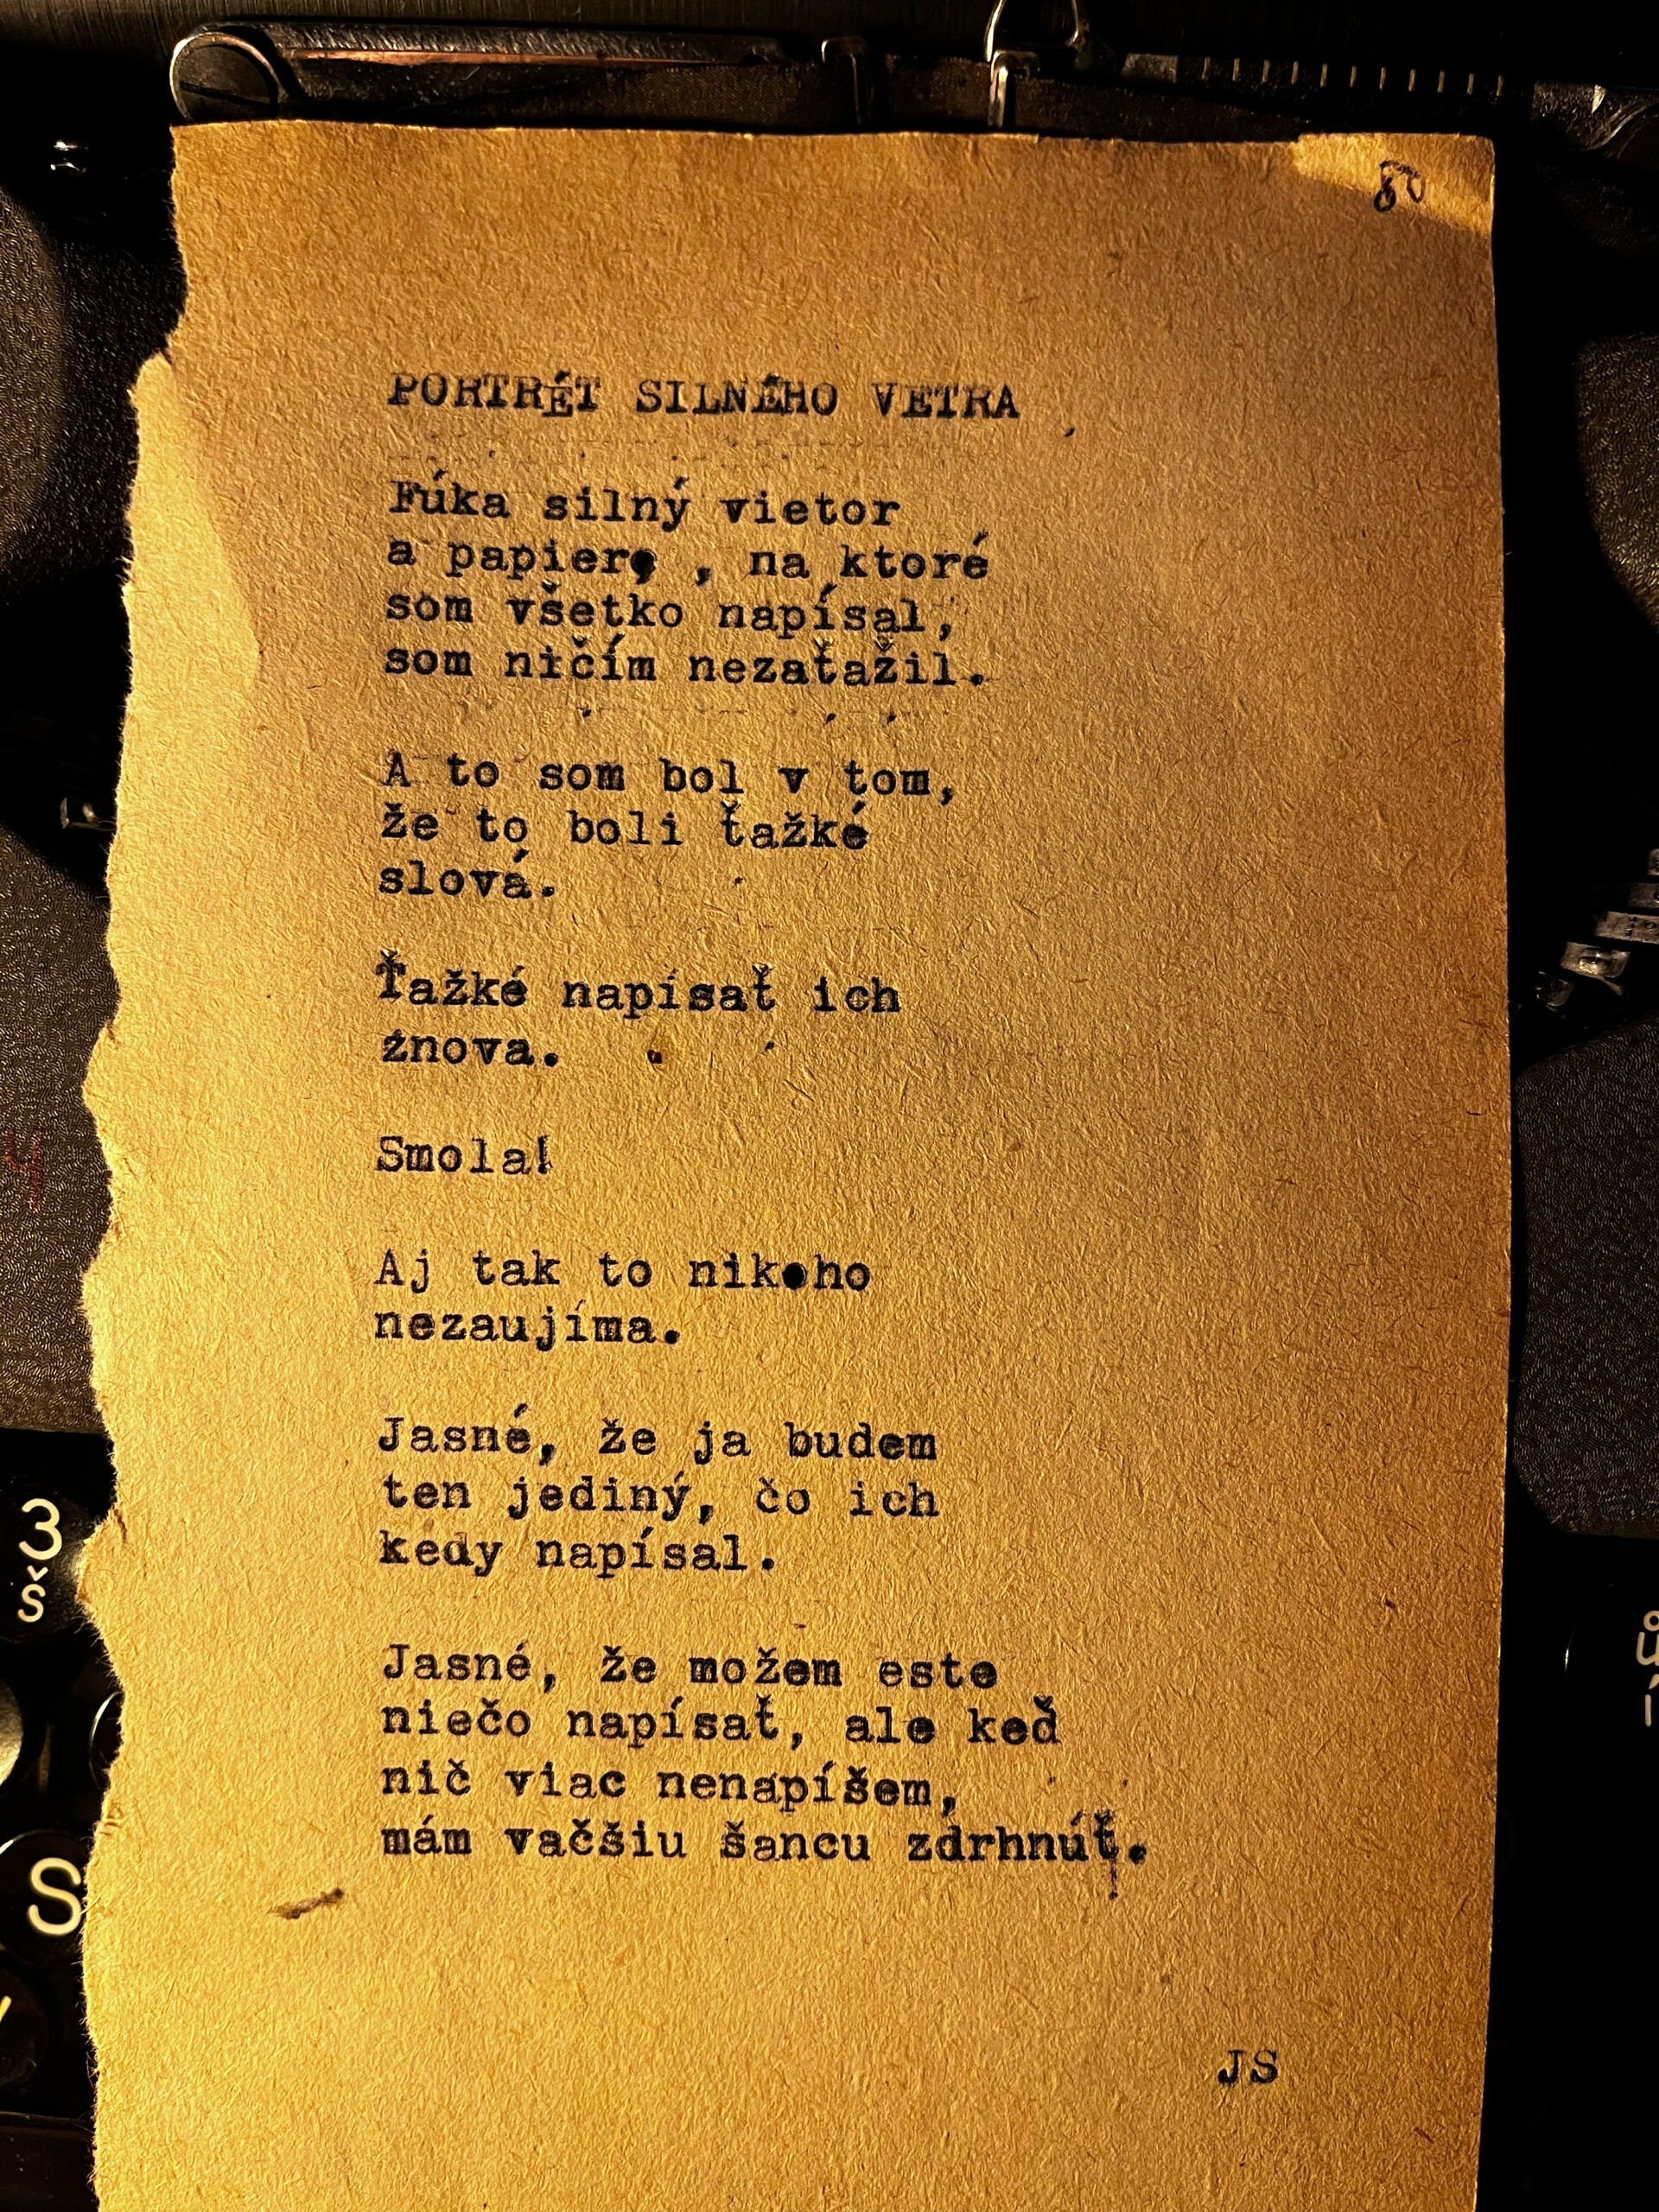 80
PORTRÉT SILNÉHO VETRA
Fúka silný vietor
a papiere , na ktoré
som všetko napísal,
som ničím nezaťažil.
A to som bol v tom,
že to boli ťažké
slová.
Ťažké napísať ich
znova.
Smola!
Aj tak to nikoho
nezaujíma.
Jasné, že ja budem
ten jediný, čo ich
kedy napísal.
Jasné, že možem este
niečo napísať, ale keď
nič viac nenapíšem,
mám vačšiu šancu zdrhnúť.
JS
3
š
S
ů